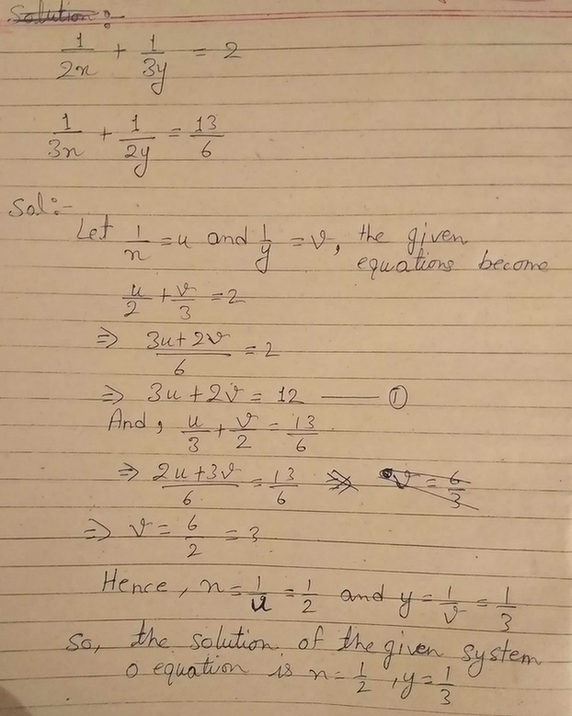 Solution:
1/2x + 1/3y = 2
1/3x + 1/2y = 13/6
Sol:-
Let 1/x = u and 1/y = v, the given
equations become
u/2 + v/3 = 2
⇒ (3u+2v)/6 = 2
⇒ 3u+2v = 12 —— ①
And, u/3 + v/2 = 13/6
⇒ (2u+3v)/6 = 13/6 ⇒ v = 6/3
⇒ v = 6/2 = 3
Hence, x = 1/u = 1/2 and y = 1/v = 1/3
So, the solution of the given system
o equation is x = 1/2, y = 1/3